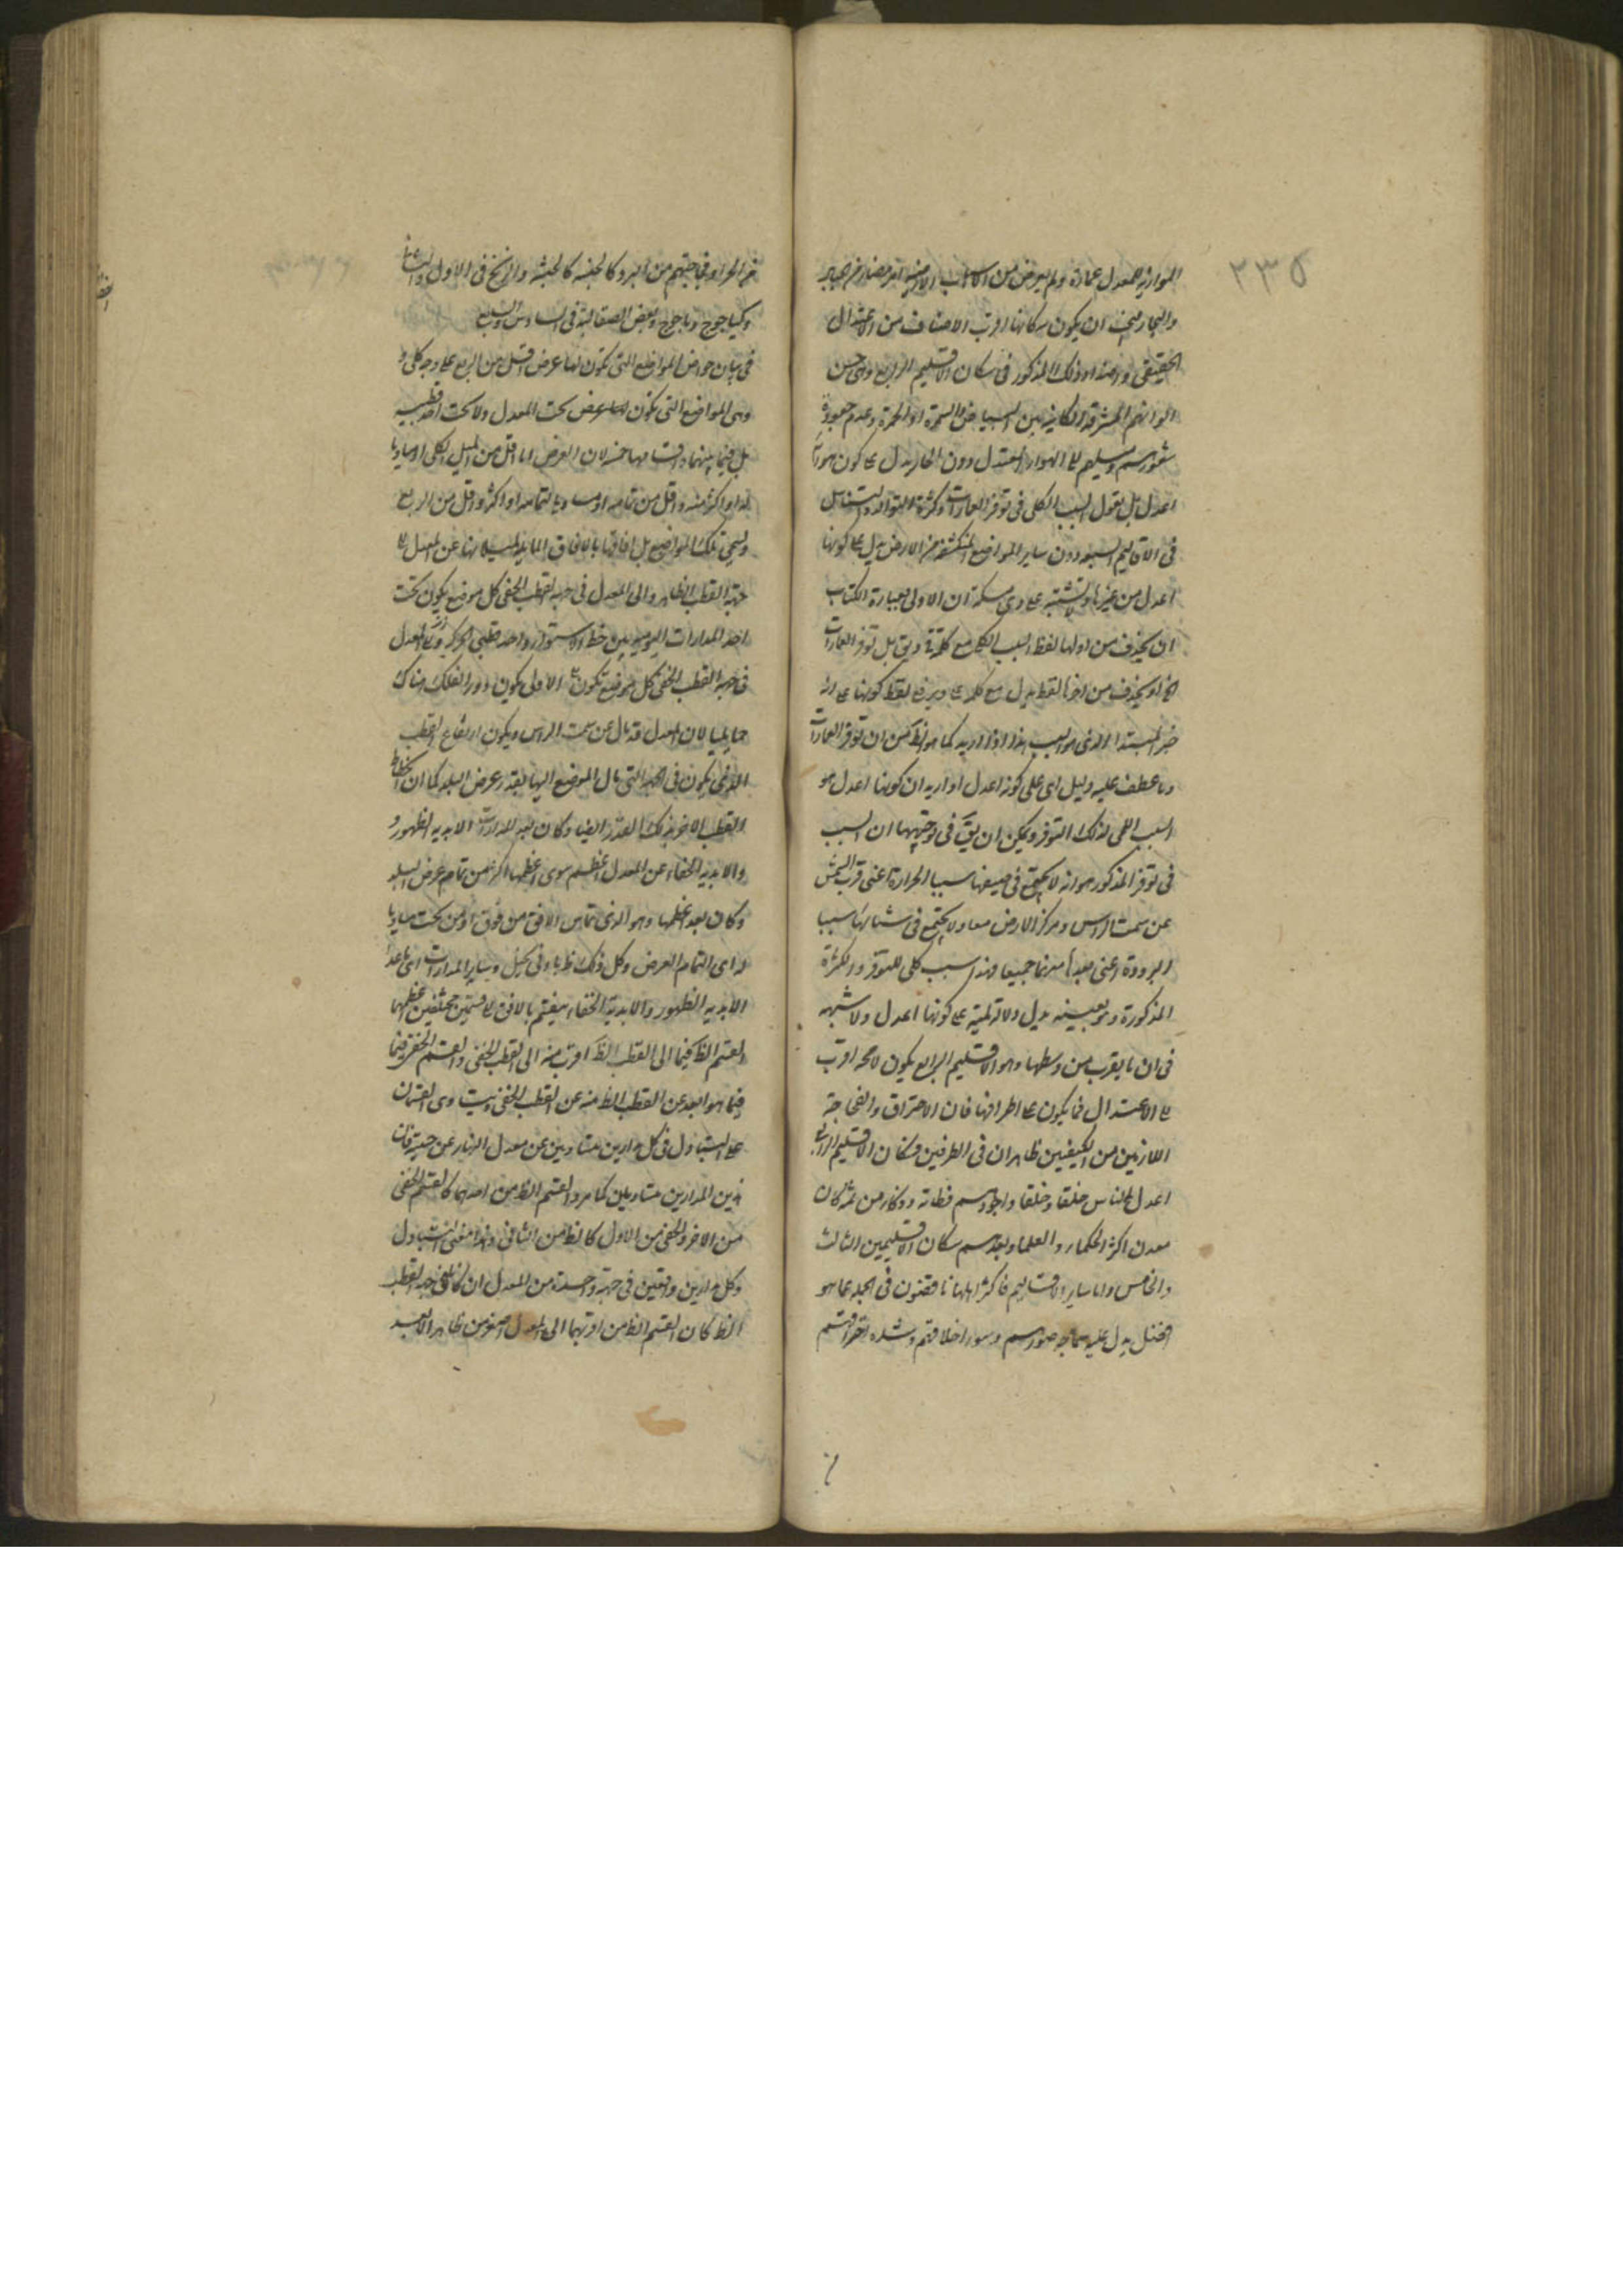 ٢٣٥
الموازية لمعدل عمارة ولم يعرض من الاسباب الارضية امر مضاد من الجبال
والبحار فيجب ان يكون سكانها اقرب الاصناف من الاعتدال
الحقيقى وذلك المذكور فى سكان الاقليم الرابع وهى حسن
الوانهم المشرقة الكاينة بين البياض والسمرة او الحمرة وعدم جعودة
شعورهم وميلهم الى الهواء المعتدل دون الحار يدل على كون هواء
اعدل بل نقول السبب الكلى فى توفر العمارات وكثرة التوالد والتناسل
فى الاقاليم السبعة دون ساير المواضع المنكشفة من الارض يدل على كونها
اعدل من غيرها ولا تشتبه على ذى مسكة ان الاولى بعبارة الكتاب
ان يحذف من اولها لفظ السبب الكلى مع كلمة فى ويق بل توفر العمارات
الخ او يحذف من اخرها لفظ يدل مع كلمة على ويرفع لفظ كونها على انه
خبر المبتدا الذى هو السبب هذا اذا اريد كما هو الظ من ان توفر العمارات
وما عطف عليه دليل انى على كونه اعدل او اريد ان كونها اعدل هو
السبب اللمى لذلك التوفر ويمكن ان يق فى توجيهها ان السبب
فى توفر المذكور هو انه لا يجتمع فى صيفها سببا الحرارة اعنى قرب الشمس
عن سمت الراس ومركز الارض معا ولا يجتمع فى شتائها سببا
البرودة اعنى بعدها عنهما جميعا فهذا سبب كلى للتوفر والكثرة
المذكورة وهو بعينه يدل دلالة لمية على كونها اعدل ولا شبهة
فى ان ما يقرب من وسطها وهو الاقليم الرابع يكون لا محة اقرب
الى الاعتدال مما يكون على اطرافها فان الاحتراق والفجاجة
اللازمين من الكيفيتين ظاهران فى الطرفين فسكان الاقليم الرابع
اعدل الناس خلقا وخلقا واجودهم فطانة وذكاء ومن ثمة كان
معدن اكثر الحكماء والعلماء وبعدهم سكان الاقليمين الثالث
والخامس واما ساير الاقاليم فاكثر اهلها ناقصون فى الجبلة عما هو
افضل يدل عليه سماجة صورهم وسوء اخلاقهم وشدة احتراقهم
من الحر او فجاجتهم من البرد كالحبشة والزنج فى الاول والثانى
وكياجوج وماجوج وبعض الصقالبة فى السادس والسابع
فى بيان خواص المواضع التى تكون لها عرض اقل من الربع على وجه كلى
وهى المواضع التى تكون لها عرض تحت المعدل ولا تحت احد قطبيه
بل فيما بينهما واقسامها خمسة لان العرض اما اقل من الميل الكلى او مساويا
له او اكثر منه واقل من تمامه او مساويا لتمامه او اكثر واقل من الربع
وتسمى تلك المواضع بل افاقها بالافاق المايلة لميلانها عن المعدل الى
جهة القطب الظاهر والى المعدل فى جهة القطب الخفى كل موضع يكون تحت
احد المدارات اليومية بين خط الاستواء واحد قطبى الحركة
فى جهة القطب الخفى كل موضع تكون الاولى يكون دور الفلك هناك
حمايليا لان المعدل قد مال عن سمت الراس ويكون ارتفاع القطب
الذى يكون فى الجهة التى مال الموضع اليها بقدر عرض البلد كما ان انحطاط
القطب الاخر بذلك القدر ايضا وكان بعد المدارات الابدية الظهور
والابدية الخفاء عن المعدل اعظم سوى اعظمها اكثر من تمام عرض البلد
وكان بعد اعظمها وهو الذى تماس الافق من فوق او من تحت مساويا
له اى لتمام العرض وكل ذلك ظ بادنى تخيل وساير المدارات اى ما عدا
الابدية الظهور والابدية الخفاء ينقسم بالافق الى قسمين مختلفين اعظمهما
القسم الظ فيما الى القطب الظ اقرب منه الى القطب الخفى والقسم الخفى فيما
فيما هو ابعد عن القطب الظ منه عن القطب الخفى ويتساوى القسمان
على التبادل فى كل مدارين متساويين عن معدل النهار عن جنبيه فان
هذين المدارين متساويان كما مر والقسم الظ من احدهما كالقسم الخفى
من الاخر والخفى من الاول كالظ من الثانى وهذا معنى التبادل
وكل مدارين واقعين فى جهة واحدة من المعدل ان كانا فى جهة القطب
الظ كان القسم الظ من اقربهما الى المعدل اصغر من ظاهر الابعد